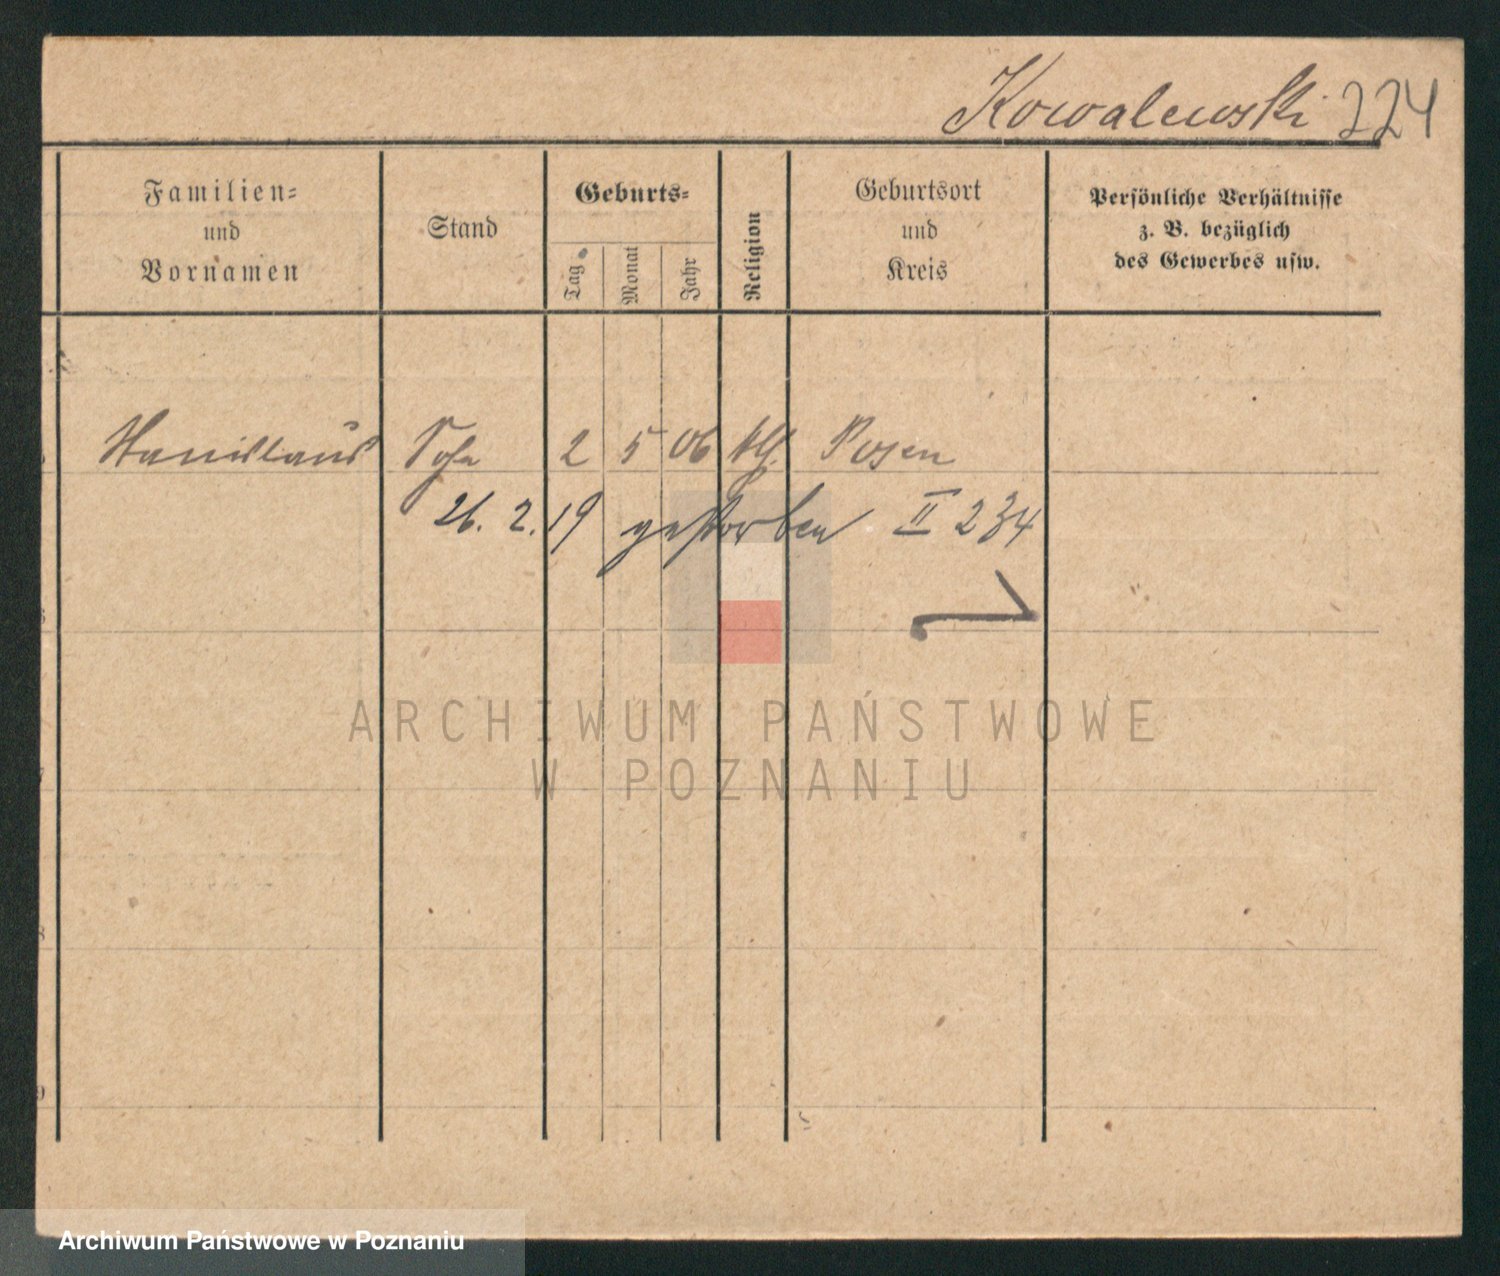 Kowalewski 224
Familien-
und
Vornamen
Stand
Geburts-
Tag
Monat
Jahr
Religion
Geburtsort
und
Kreis
Persönliche Verhältnisse
z. B. bezüglich
des Gewerbes usw.
Stanislaus Sohn 2 5 06 kth. Posen
26. 2. 19 gestorben II 234
ARCHIWUM PAŃSTWOWE
W POZNANIU
8
9
Archiwum Państwowe w Poznaniu